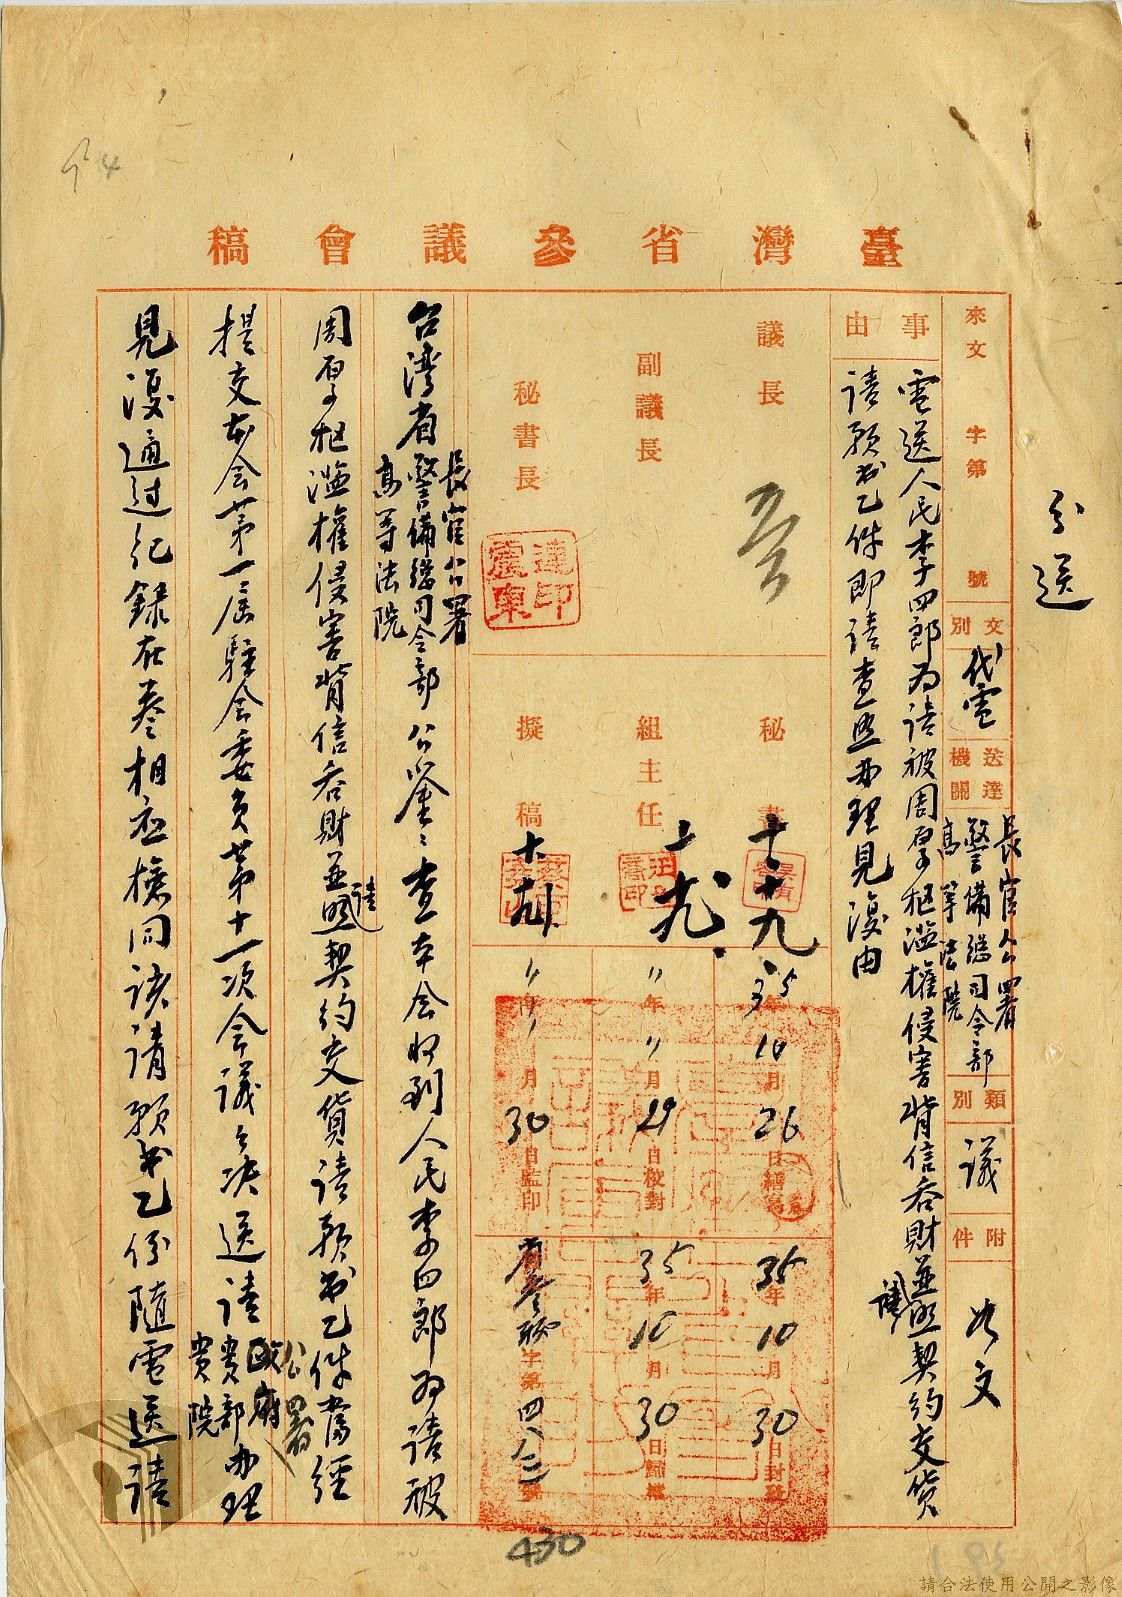 臺灣省參議會稿
分送
來文 字第 號
文別 代電
送達機關 長官公署 警備總司令部 高等法院
類別 議
附件 如文
事由
電送人民李四郎為請被周厚枢滥權侵害背信吞財並請照契約交货
請願书乙件即請查照办理見復由
議長
副議長
秘書長
連震東印
秘書 十、十九
組主任
擬稿
35年10月26日繕寫
〃年〃月29日校對
〃年〃月30日監印
35年10月30日封發
35年10月30日歸檔
省參秘字第四八三號
台湾省長官公署 警備總司令部 高等法院公鉴：查本会收到人民李四郎為請被
周厚枢滥權侵害背信吞财並請照契約交貨請願书乙件当經
提交本会第一届駐会委員第十一次会議議决送請公署 貴部 貴院办理
見復通过纪録在卷相应檢同该請願书乙份隨電送請
430
105
請合法使用公開之影像